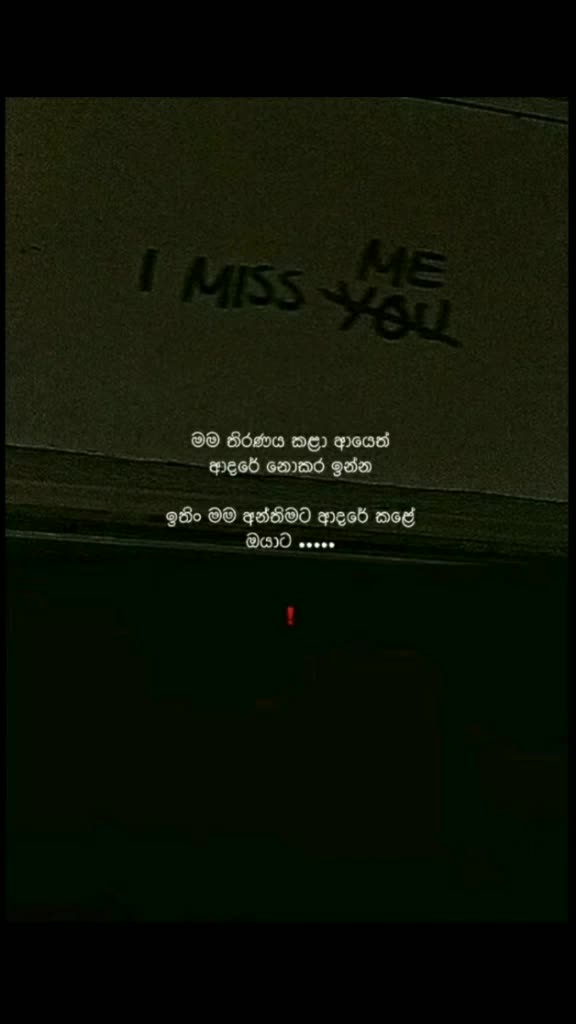 ME
I MISS YOU
මම තිරණය කළා ආයෙත්
ආදරේ නොකර ඉන්න
ඉතිං මම අන්තිමට ආදරේ කළේ
ඔයාට •••••
❗